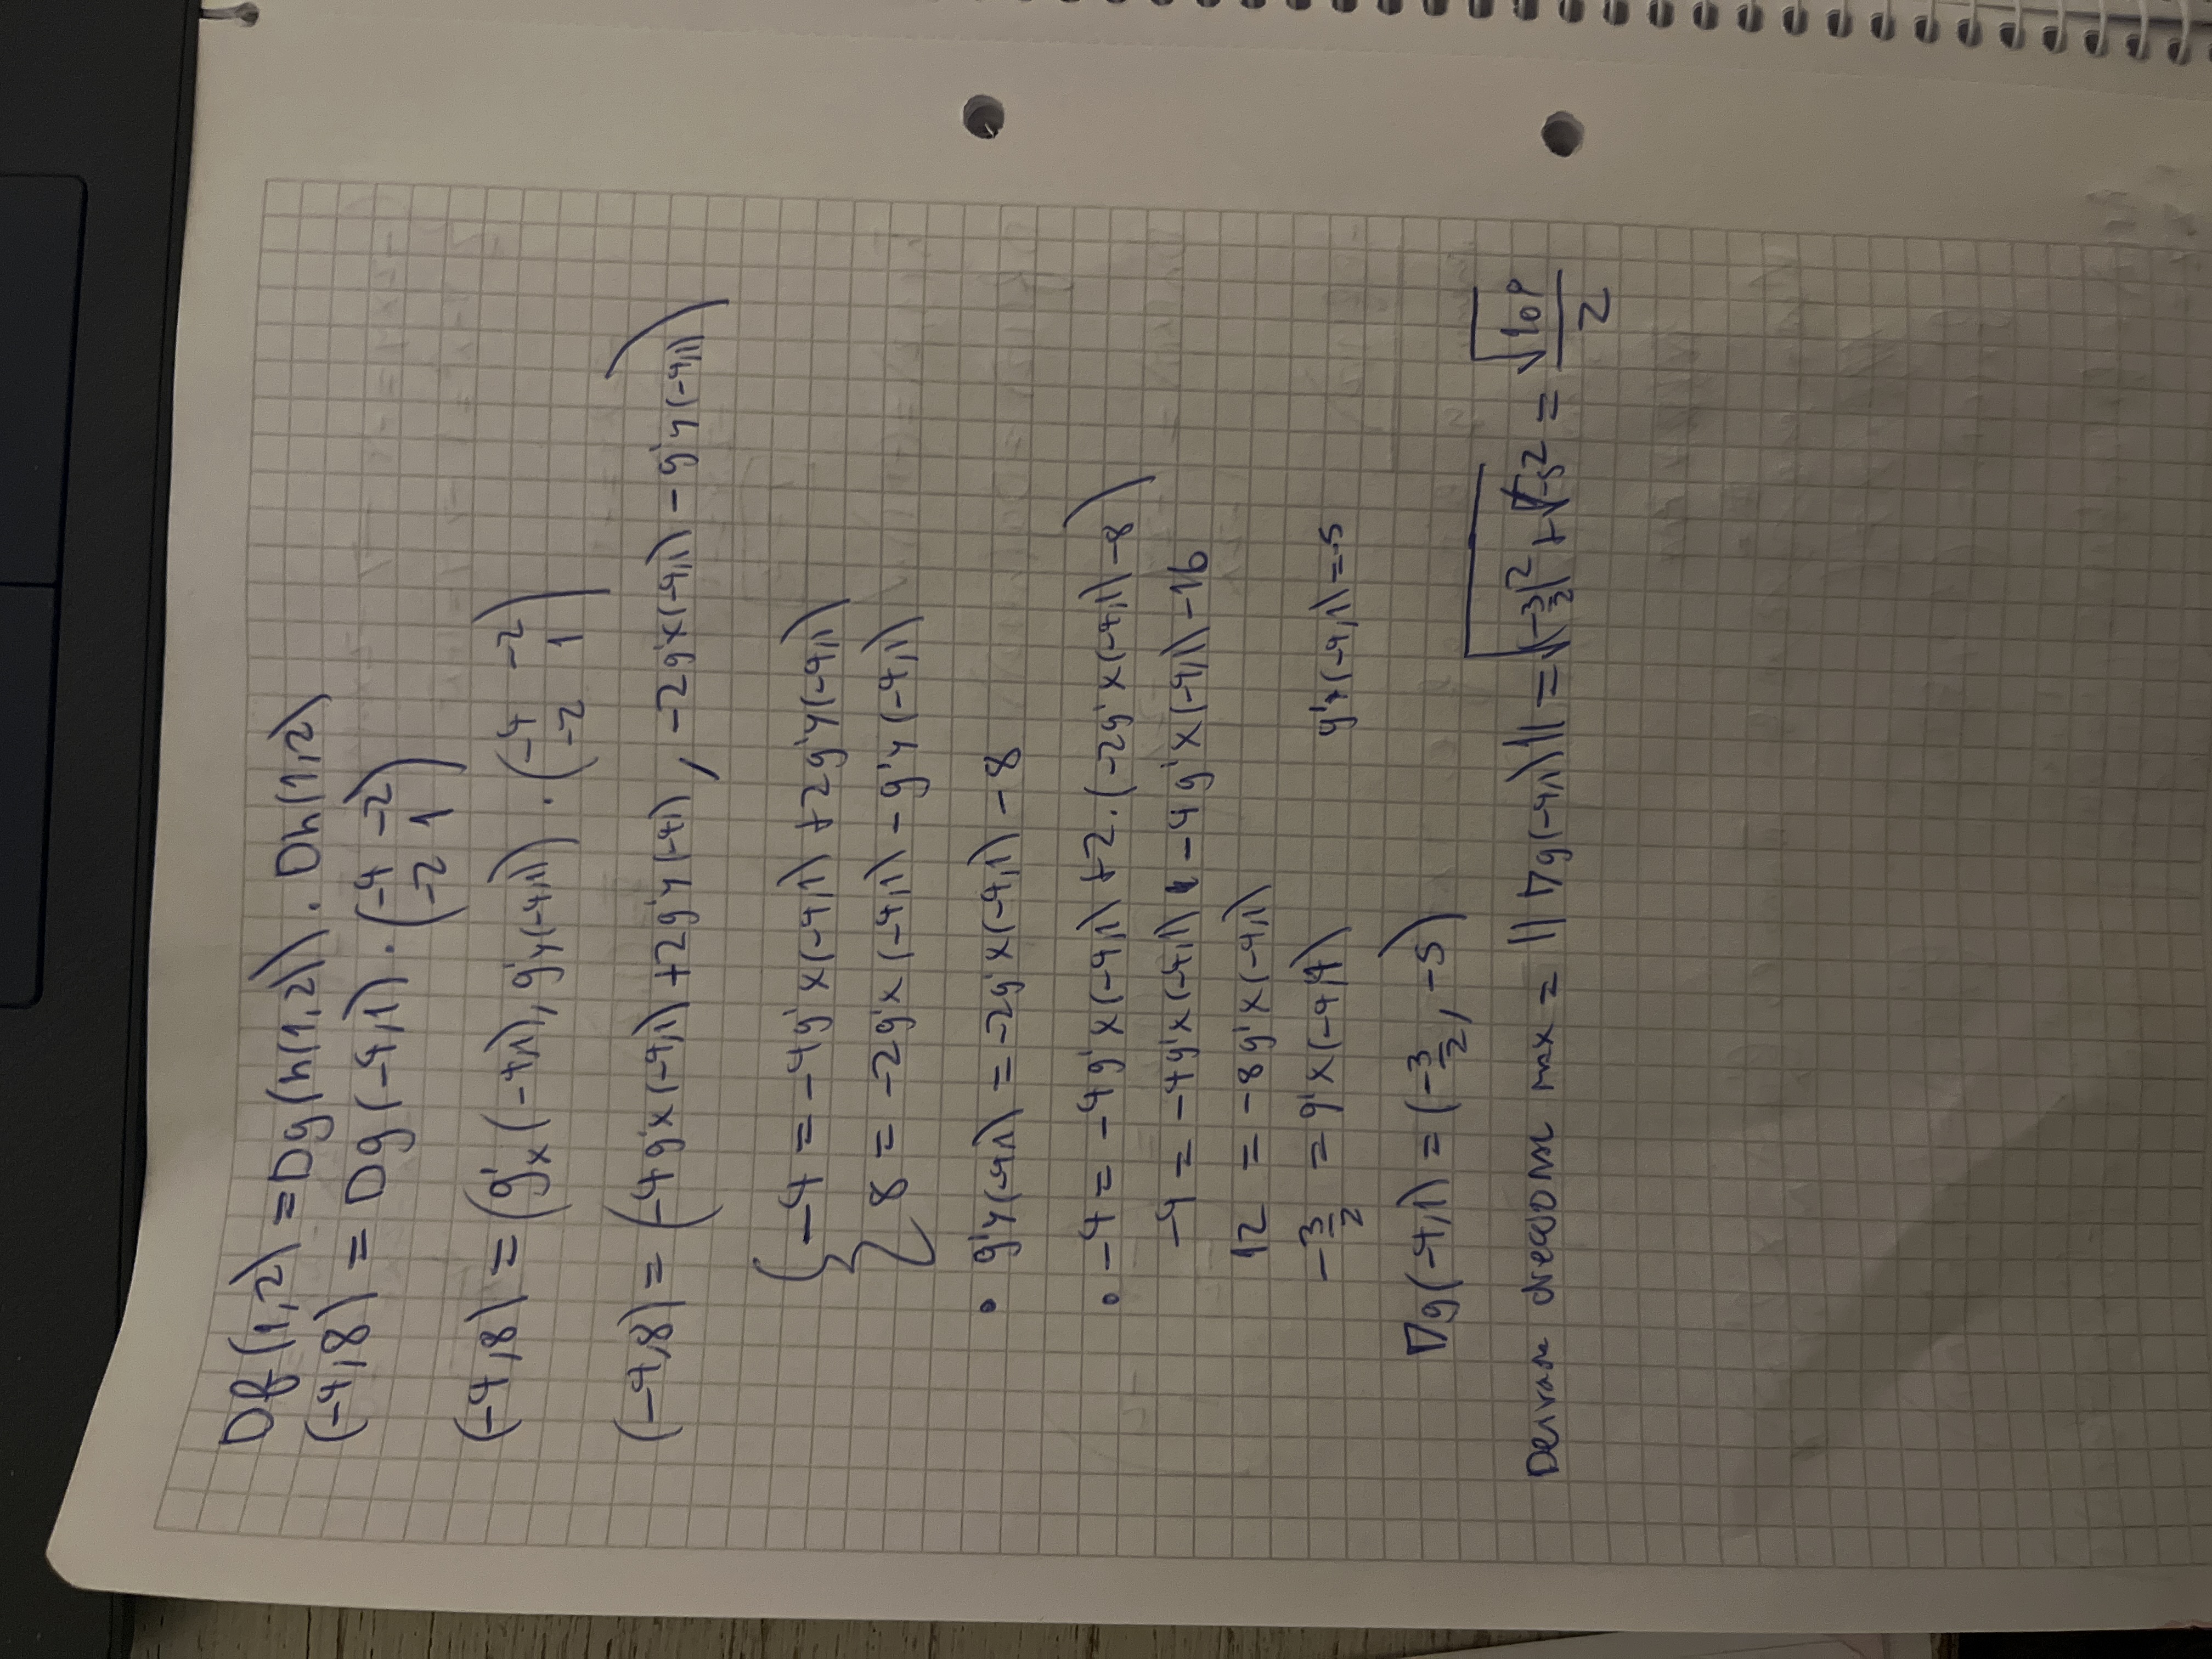 Df(1,2) = Dg(h(1,2)) . Dh(1,2)
(-4,8) = Dg(-4,1) . (-4 -2
-2 1)
(-4,8) = (g'x(-4,1), g'y(-4,1)) . (-4 -2
-2 1)
(-4,8) = (-4g'x(-4,1) +2g'y(-4,1), -2g'x(-4,1) - g'y(-4,1))
{ -4 = -4g'x(-4,1) +2g'y(-4,1)
8 = -2g'x(-4,1) - g'y(-4,1)
• g'y(-4,1) = -2g'x(-4,1) -8
• -4 = -4g'x(-4,1) +2.(-2g'x(-4,1) -8)
-4 = -4g'x(-4,1) -4g'x(-4,1) -16
12 = -8g'x(-4,1)
-3/2 = g'x(-4,1) g'y(-4,1) = -5
∇g(-4,1) = (-3/2, -5)
max = ||∇g(-4,1)|| = √(-3/2)² + (-5)² = √109/2